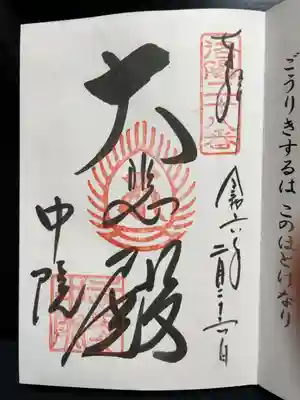 ごうりきするは このほとけなり
奉拝
洛陽二八番
令和六年二月二十一日
大悲殿
中院